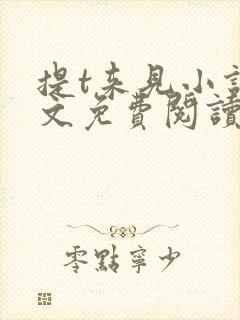 提t来见小
文免費閱讀
零點寧少